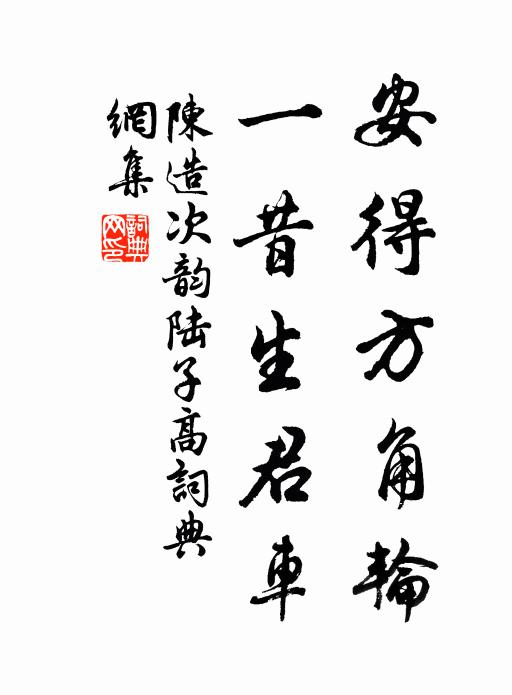 安得方角輪
一昔生君車
陳造次韵陆子高詞典
網集
詞典
网印